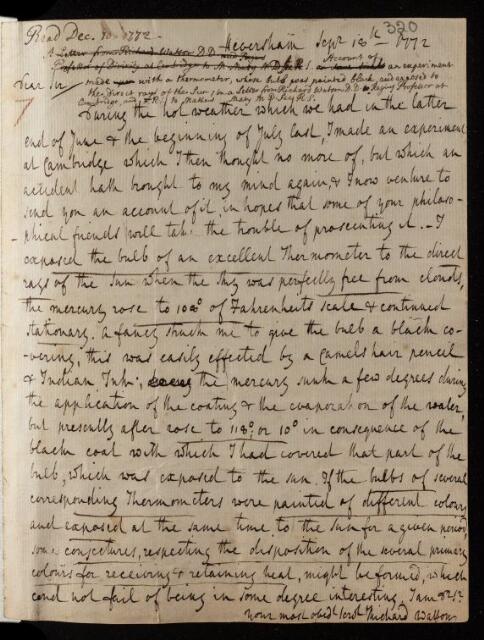 320
Read Dec. 10. 1772.
Heversham Septr 18th 1772
A Letter from Richard Watson D.D.
Professor of Divinity at Cambridge to M. Maty M.D. Sec. R.S.
Account of an experiment
made with a thermometer, whose bulb was painted black, and exposed to
the direct rays of the Sun; in a Letter from Richard Watson D.D. Regius Professor at
Cambridge, and F.R.S. to Matthew Maty M.D. Sec. R.S.
Dear Sir,
During the hot weather which we had in the latter
end of June & the beginning of July last, I made an experiment
at Cambridge which I then thought no more of, but which an
accident hath brought to my mind again, & I now venture to
send you an account of it, in hopes that some of your philoso-
-phical friends will take the trouble of prosecuting it. - I
exposed the bulb of an excellent Thermometer to the direct
rays of the Sun when the Sky was perfectly free from clouds,
the mercury rose to 108° of Fahrenheits scale & continued
stationary. a fancy struck me to give the bulb a black co-
-vering, this was easily effected by a camels hair pencil
& Indian Ink, the mercury sunk a few degrees during
the application of the coating & the evaporation of the water,
but presently after rose to 118° or 10° in consequence of the
black coat with which I had covered that part of the
bulb, which was exposed to the sun. If the bulbs of several
corresponding Thermometers were painted of different colours
and exposed at the same time to the Sun for a given period,
some conjectures, respecting the disposition of the several primary
colours for receiving & retaining heat, might be formed, which
coud not fail of being in some degree interesting. I am &c
your most obedt servt Richard Watson